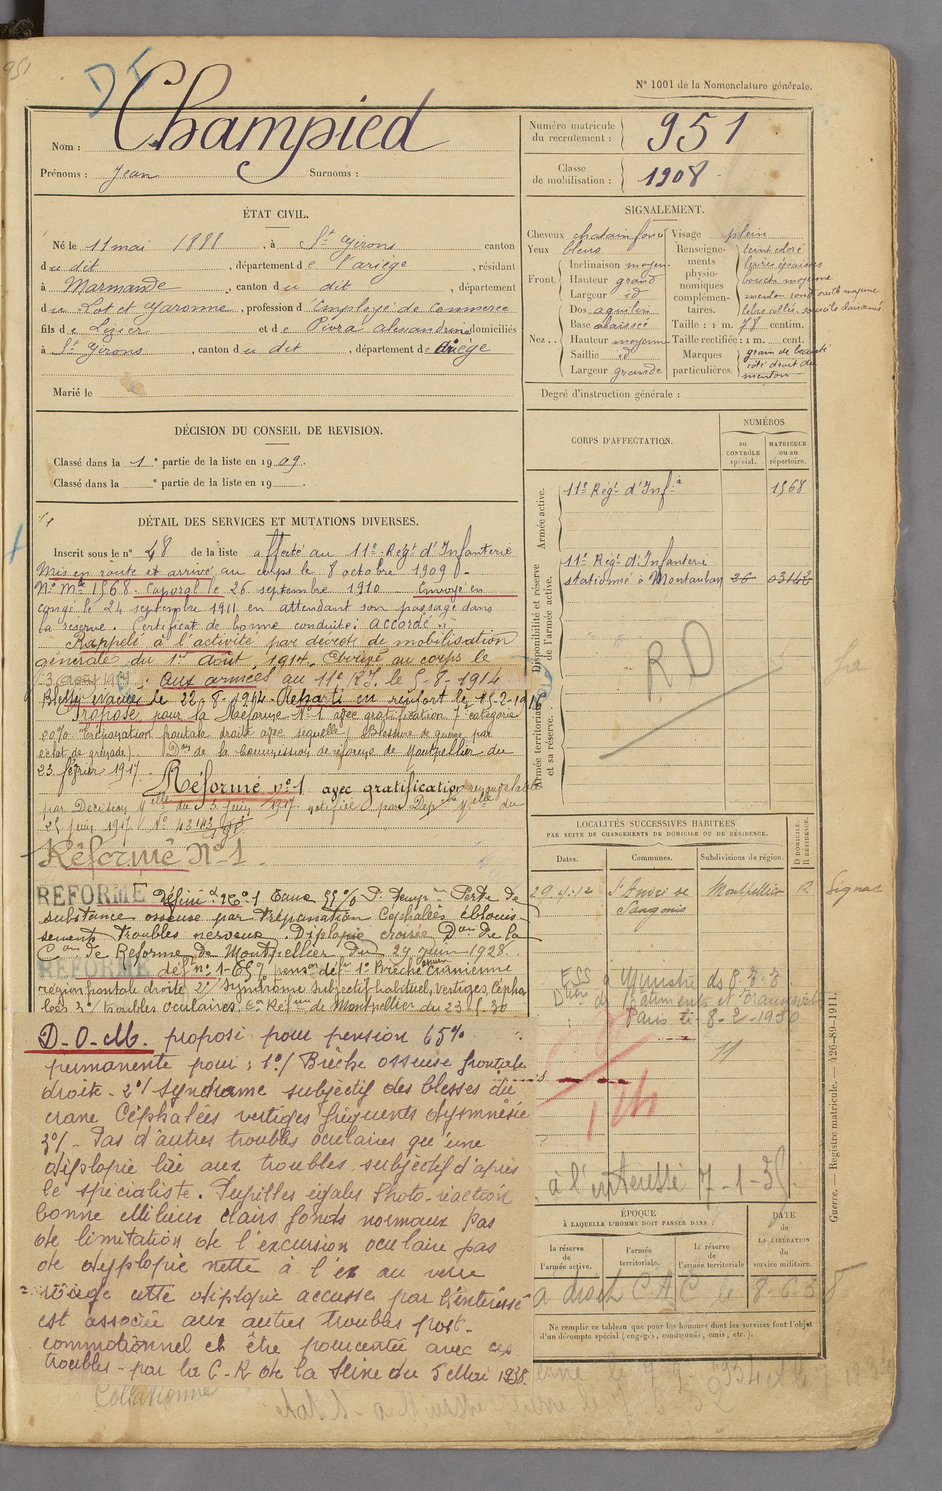 951
DI
N° 1001 de la Nomenclature générale.
Nom : Champied
Prénoms : Jean Surnoms :
Numéro matricule du recrutement : 951
Classe de mobilisation : 1908
ÉTAT CIVIL.
Né le 11 mai 1888, à St Girons canton
du dit, département de l'ariège, résidant
à Marmande, canton du dit, département
du Lot et Garonne, profession d'Employé de commerce
fils de Lézier et de Piura Alexandrine domiciliés
à St Girons, canton du dit, département de Ariège
Marié le
SIGNALEMENT.
Cheveux chatain foncé
Yeux bleus
Front. Inclinaison moyen.
Hauteur grand
Largeur id
Nez.. Dos aquilin
Base abaissé
Hauteur moyenne
Saillie id
Largeur grande
Visage plein
Renseignements physionomiques complémentaires. teint doré
lèvres épaisses
bouche moyenne
menton rond
Taille : 1 m. 78 centim.
Taille rectifiée : 1 m. cent.
Marques particulières. grain de beauté
côté droit du
menton
Degré d'instruction générale :
DÉCISION DU CONSEIL DE REVISION.
Classé dans la 1e partie de la liste en 1909.
Classé dans la e partie de la liste en 19
CORPS D'AFFECTATION.
NUMÉROS
au CONTRÔLE spécial.
MATRICULE ou au répertoire.
Armée active.
11e Régt d'Infie 1568
Disponibilité et réserve de l'armée active.
11e Régt d'Infanterie
stationné à Montauban 26 03142
RD
Armée territoriale et sa réserve.
DÉTAIL DES SERVICES ET MUTATIONS DIVERSES.
Inscrit sous le n° 48 de la liste affecté au 11e Régt d'Infanterie
Mis en route et arrivé au corps le 8 octobre 1909.
No Mle 1568. Caporal le 26 septembre 1910 Envoyé en
congé le 24 septembre 1911 en attendant son passage dans
la réserve. Certificat de bonne conduite : accordé.
Rappelé à l'activité par décret de mobilisation
générale du 1er Août 1914. Arrivé au corps le
3 Août 1914. aux armées au 11e R.I. le 5-8-1914
Blessé évacué le 22-8-1914. Reparti en renfort le 15-2-1916
Proposé pour la Réforme N° 1 avec gratification 7e catégorie
20%. Trépanation frontale droite avec séquelle (Blessure de guerre par
éclat de grenade). Don de la Commission de réforme de Montpellier du
23 février 1917.
Réformé n° 1 avec gratification renouvelable
par Décision Mielle du 5 juin 1917 notifiée par Dep. Mielle du
25 juin 1917 N° 43143
Réformé N° 1.
REFORMÉ Défini d. N° 1 Taux 55% Dt temp. Perte de
substance osseuse par trépanation Céphalées éblouis-
sements troubles nerveux. Diplopie croisée Don de la
Con de Réforme de Montpellier du 27 Juin 1928.
REFORMÉ déf n° 1-65% pension défve 1° Brèche Cranienne
région frontale droite 2° Syndrôme subjectif habituel, vertiges, Cépha
lées 3°/ troubles oculaires. Con Réfme de Montpellier du 23.5.30
D.O.M. proposé pour pension 65%
permanente pour : 1°/ Brèche osseuse frontale
droite - 2°/ Syndrome subjectif des blessés du
crane Céphalées vertiges fréquents dysmnésie
3°/ - Pas d'autres troubles oculaires qu'une
diplopie liée aux troubles subjectif d'après
le spécialiste. Pupilles égales Photo-réaction
bonne Milieux clairs fonds normaux pas
de limitation de l'excursion oculaire pas
de dyplopie nette à l'ex au verre
rouge cette diplopie accusée par l'intéressé
est associée aux autres troubles post-
commotionnel et être pourcentée avec ces
troubles - par la C.R de la Seine du 5 Mai 1938.
Collationné
LOCALITÉS SUCCESSIVES HABITÉES
PAR SUITE DE CHANGEMENTS DE DOMICILE OU DE RÉSIDENCE.
Dates.
Communes.
Subdivisions de région.
D domicile. R résidence.
29.4.12 St André de Sangonis Montpellier R
Paris li 8-2-1930
à l'intéressé 7-1-35.
ÉPOQUE
À LAQUELLE L'HOMME DOIT PASSER DANS :
la réserve de l'armée active.
l'armée territoriale.
la réserve de l'armée territoriale
DATE de LA LIBÉRATION du service militaire.
Ne remplir ce tableau que pour les hommes dont les services font l'objet
d'un décompte spécial (engagés, commués, omis, etc.).
Guerre. — Registre matricule. — 426-89-1911.